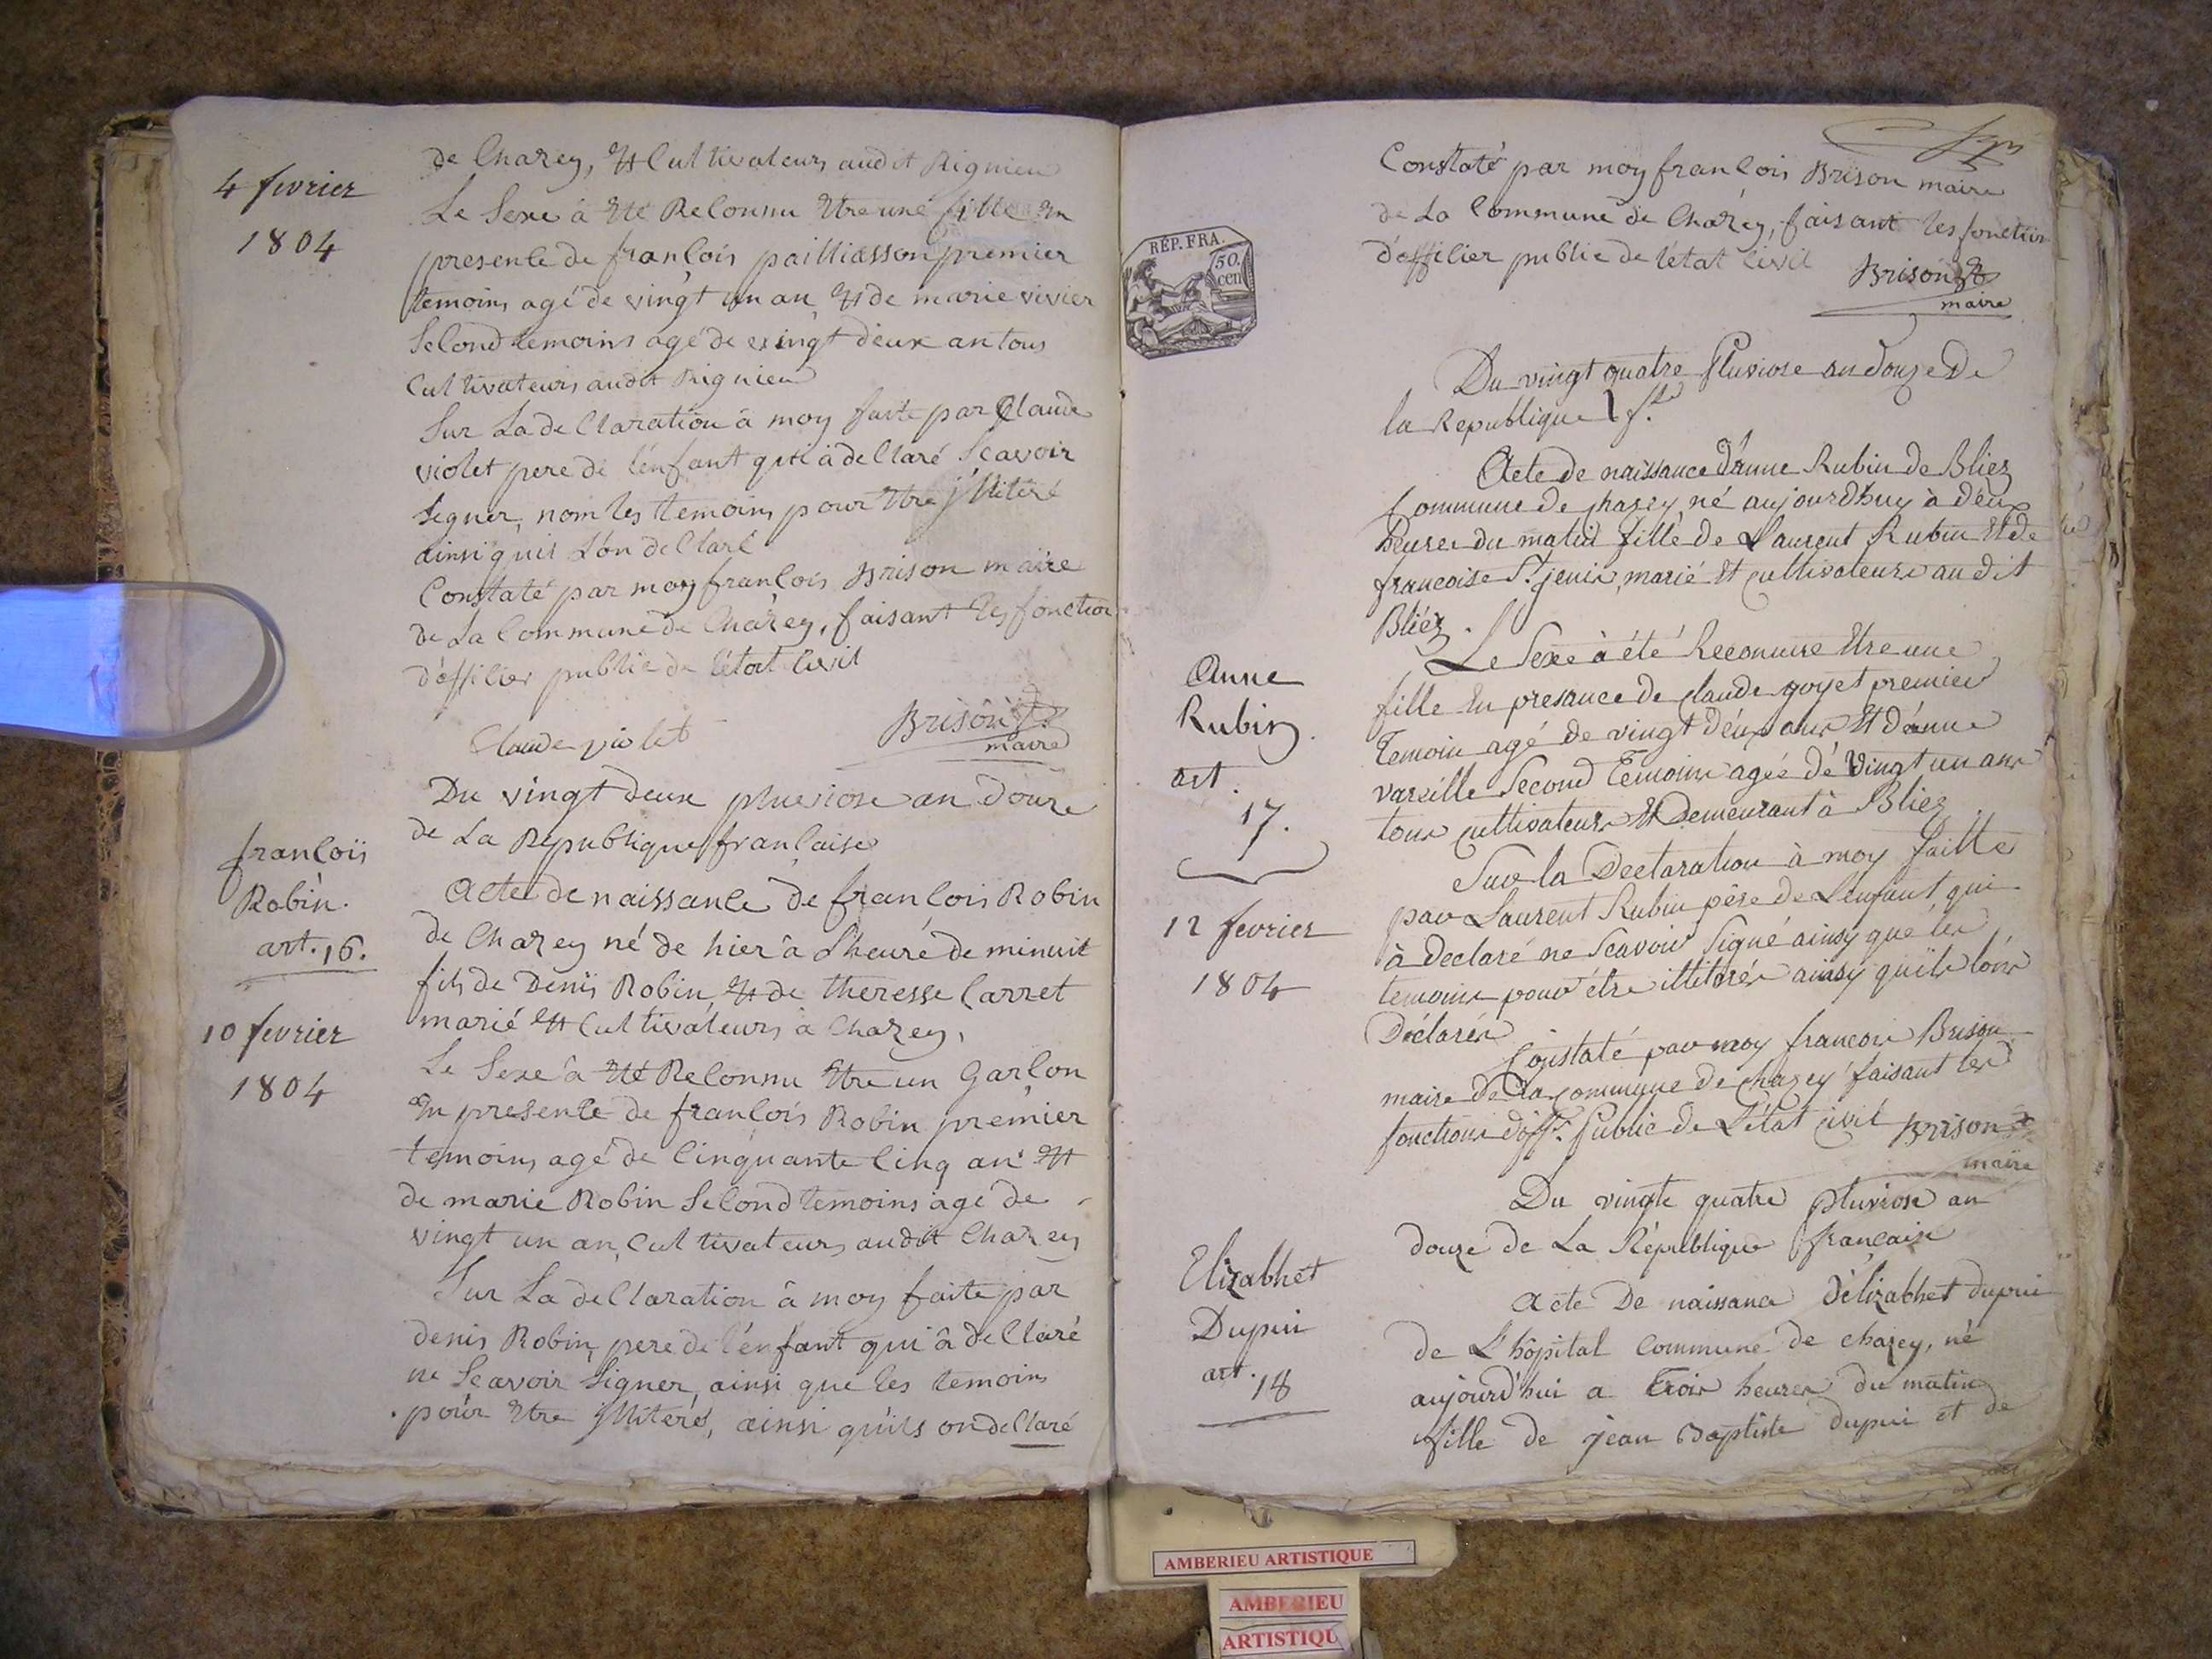 4 fevrier
1804
de Chazey, et Cultivateurs audit Rignieu
Le Sexe à eté Reconnu etre une fille en
presence de françois pailliasson premier
temoins agé de vingt un an, et de marie vivier
Second temoins agé de vingt deux an tous
Cultivateurs audit Rignieu
Sur La declaration à moy faite par Claude
violet pere de l'enfant qui à declaré Scavoir
signer, nom les temoins pour etre jlliteré
ainsi quis l'on declaré
Constaté par moy françois Brison maire
de La Commune de Chazey, faisant les fonction
d'officier public de l'état Civil
Claude violet Brison
maire
Du vingt deux pluviose an douze
de La Republique française
françois
Robin.
art. 16.
10 fevrier
1804
Acte de naissance de françois Robin
de Chazey né de hier à l'heure de minuit
fils de Denis Robin, et de theresse Carret
marié et Cultivateurs à Chazey,
Le Sexe à eté Reconnu etre un Garçon
en presence de françois Robin premier
temoins agé de Cinquante Cinq an et
de marie Robin Second temoins agé de
vingt un an, Cultivateurs audit Chazey
Sur La declaration à moy faite par
denis Robin, pere de l'enfant qui à declaré
ne Scavoir signer, ainsi que les temoins
pour etre jlliteré, ainsi qu'ils on declaré
Constaté par moy françois Brison maire
de La Commune de Chazey, faisant les fonction
d'officier public de l'état Civil Brison
maire
RÉP. FRA.
50
cen
Du vingt quatre Pluviose an douze De
la Republique f.se
Anne
Rubin.
art.
17.
12 fevrier
1804
Acte de naissance d'anne Rubin de Bliez
Commune de chazey, né aujourd'huy à deux
heures du matin fille de Laurent Rubin et de
francoise St. jenis, marié et cultivateurs au dit
Bliéz.
Le Sexe à été Reconnue Etre une
fille En presance de claude goyet premier
Temoin agé de vingt deux ans Et d'anne
vareille Second Temoins agée de vingt un ans
tous cultivateurs et Demeurant à Bliez
Sur la Declaration à moy faitte
par Laurent Rubin père de L'enfant, qui
à Declaré ne Scavoir Signé ainsy que les
temoins pour être illiterés ainsy quils lons
Déclarés
Constaté par moy francois Brison
maire de La commune de chazey faisant les
fonctions doffr. Public de L'état civil Brison
maire
Du vingte quatre pluviose an
douze de La République française
Elizabhet
Dupui
art.
18
Acte De naissance d'élizabhet dupui
de L'hôpital Commune de chazey, né
aujourd'hui a trois heures du matin
fille de jean Baptiste dupui et de
AMBERIEU ARTISTIQUE
AMBERIEU
ARTISTIQU